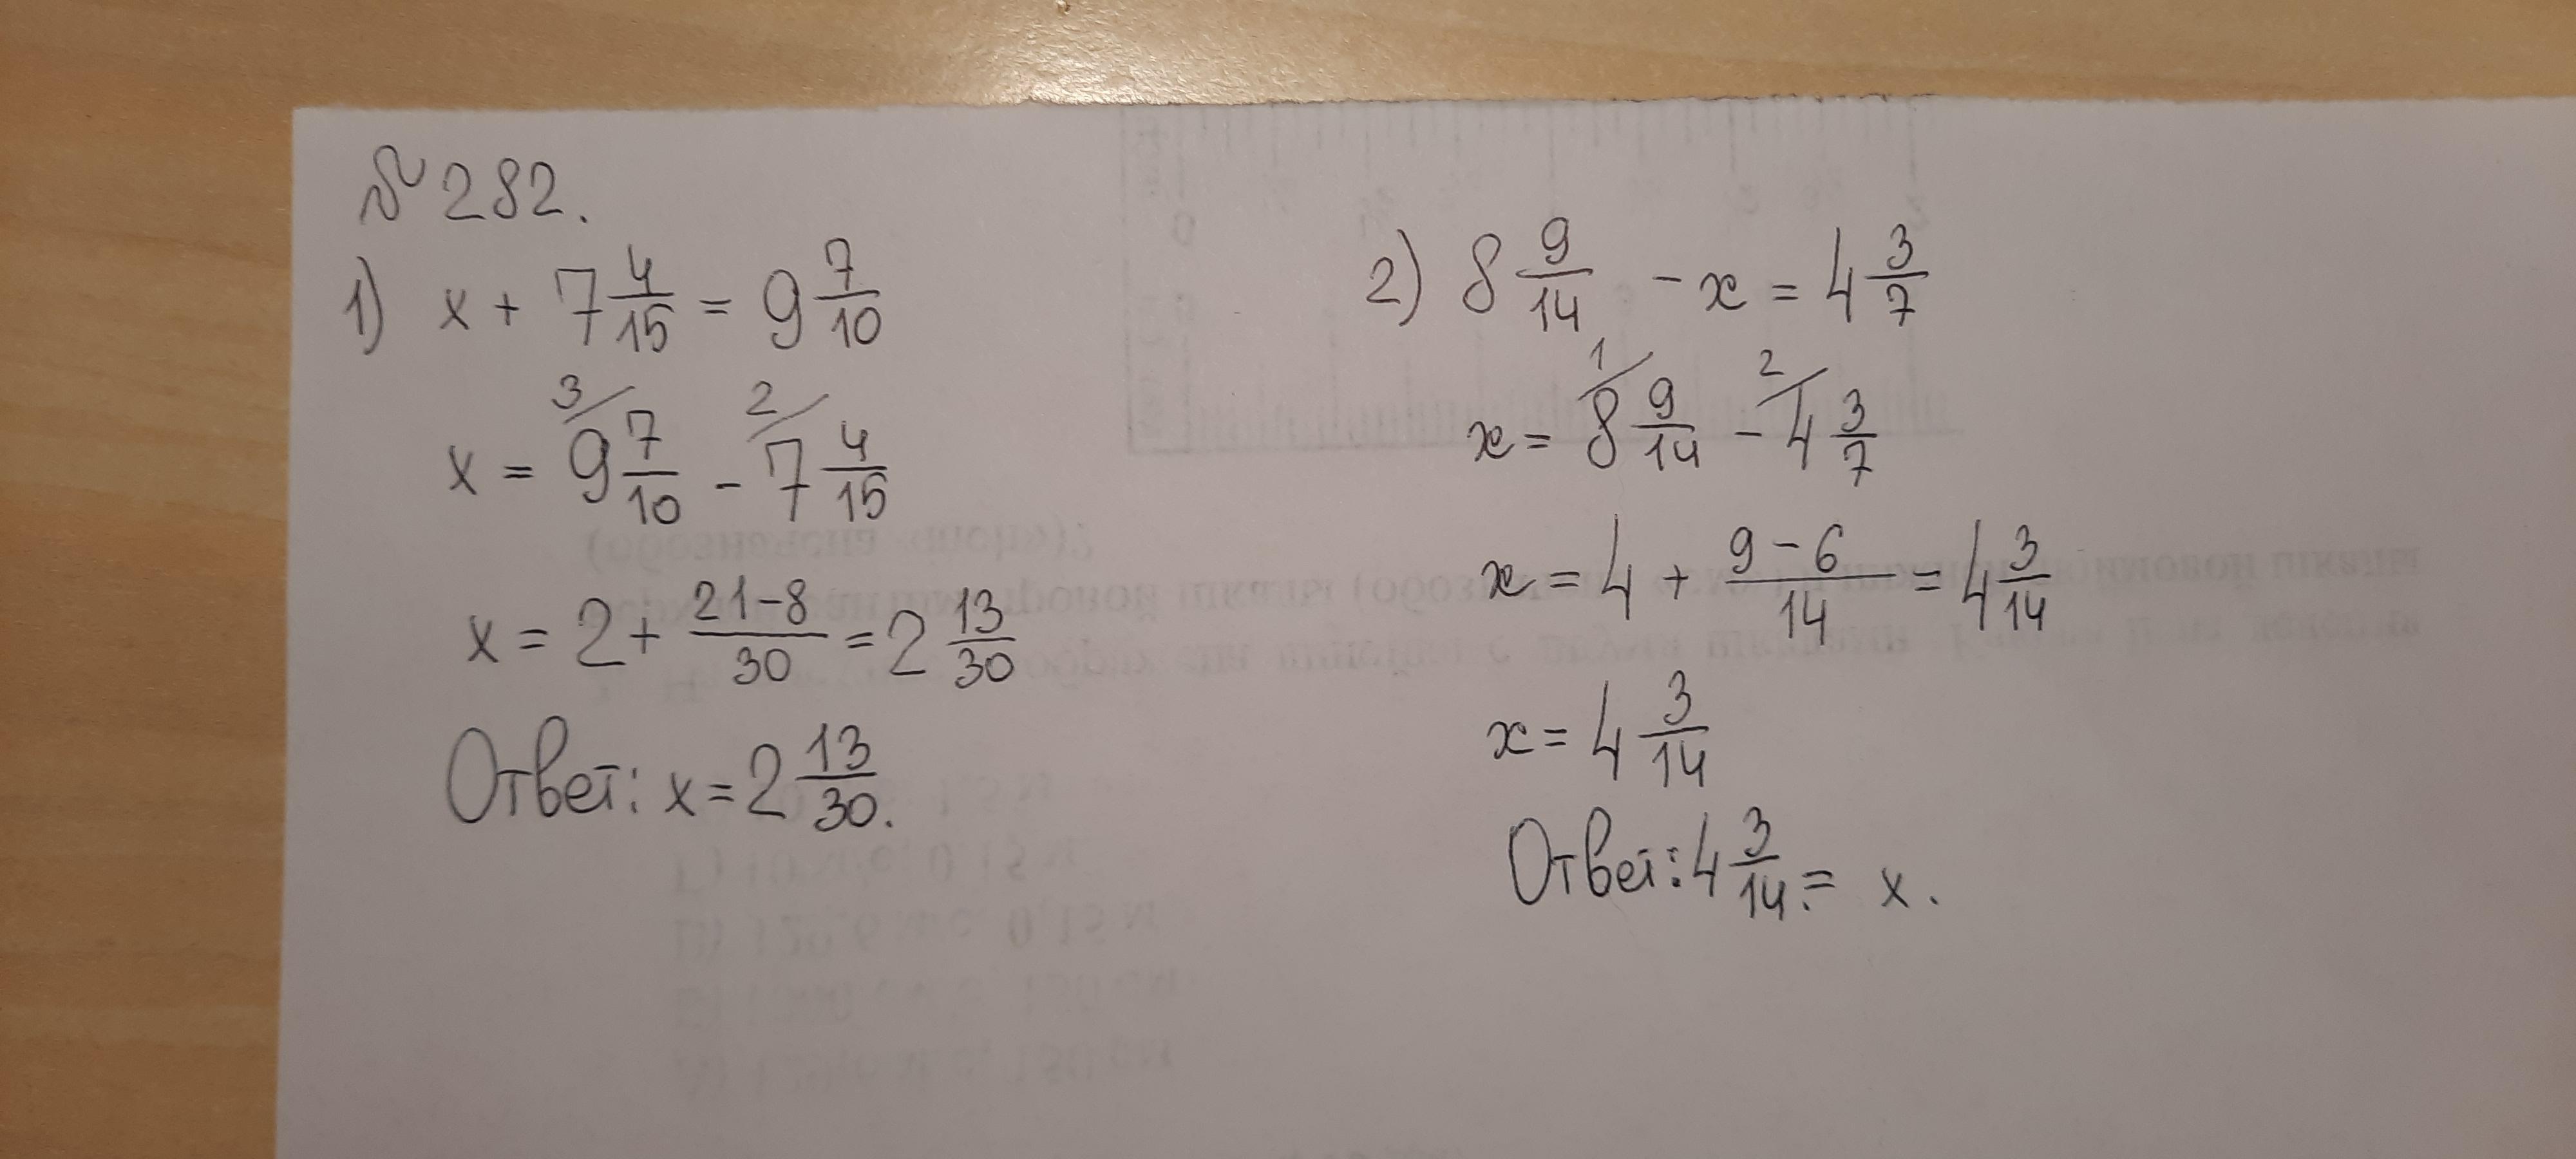 № 282.
1) x + 7 4/15 = 9 7/10
3/ 2/
x = 9 7/10 - 7 4/15
x = 2 + 21-8/30 = 2 13/30
Ответ: x = 2 13/30.
2) 8 9/14 - x = 4 3/7
1/ 2/
x = 8 9/14 - 4 3/7
x = 4 + 9-6/14 = 4 3/14
x = 4 3/14
Ответ: 4 3/14. = x.